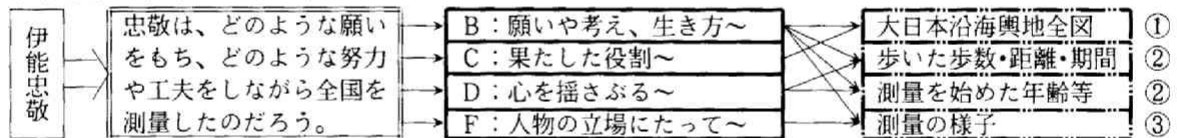 伊能忠敬
忠敬は、どのような願い
をもち、どのような努力
や工夫をしながら全国を
測量したのだろう。
B：願いや考え、生き方～
C：果たした役割～
D：心を揺さぶる～
F：人物の立場にたって～
大日本沿海輿地全図 ①
歩いた歩数・距離・期間 ②
測量を始めた年齢等 ②
測量の様子 ③